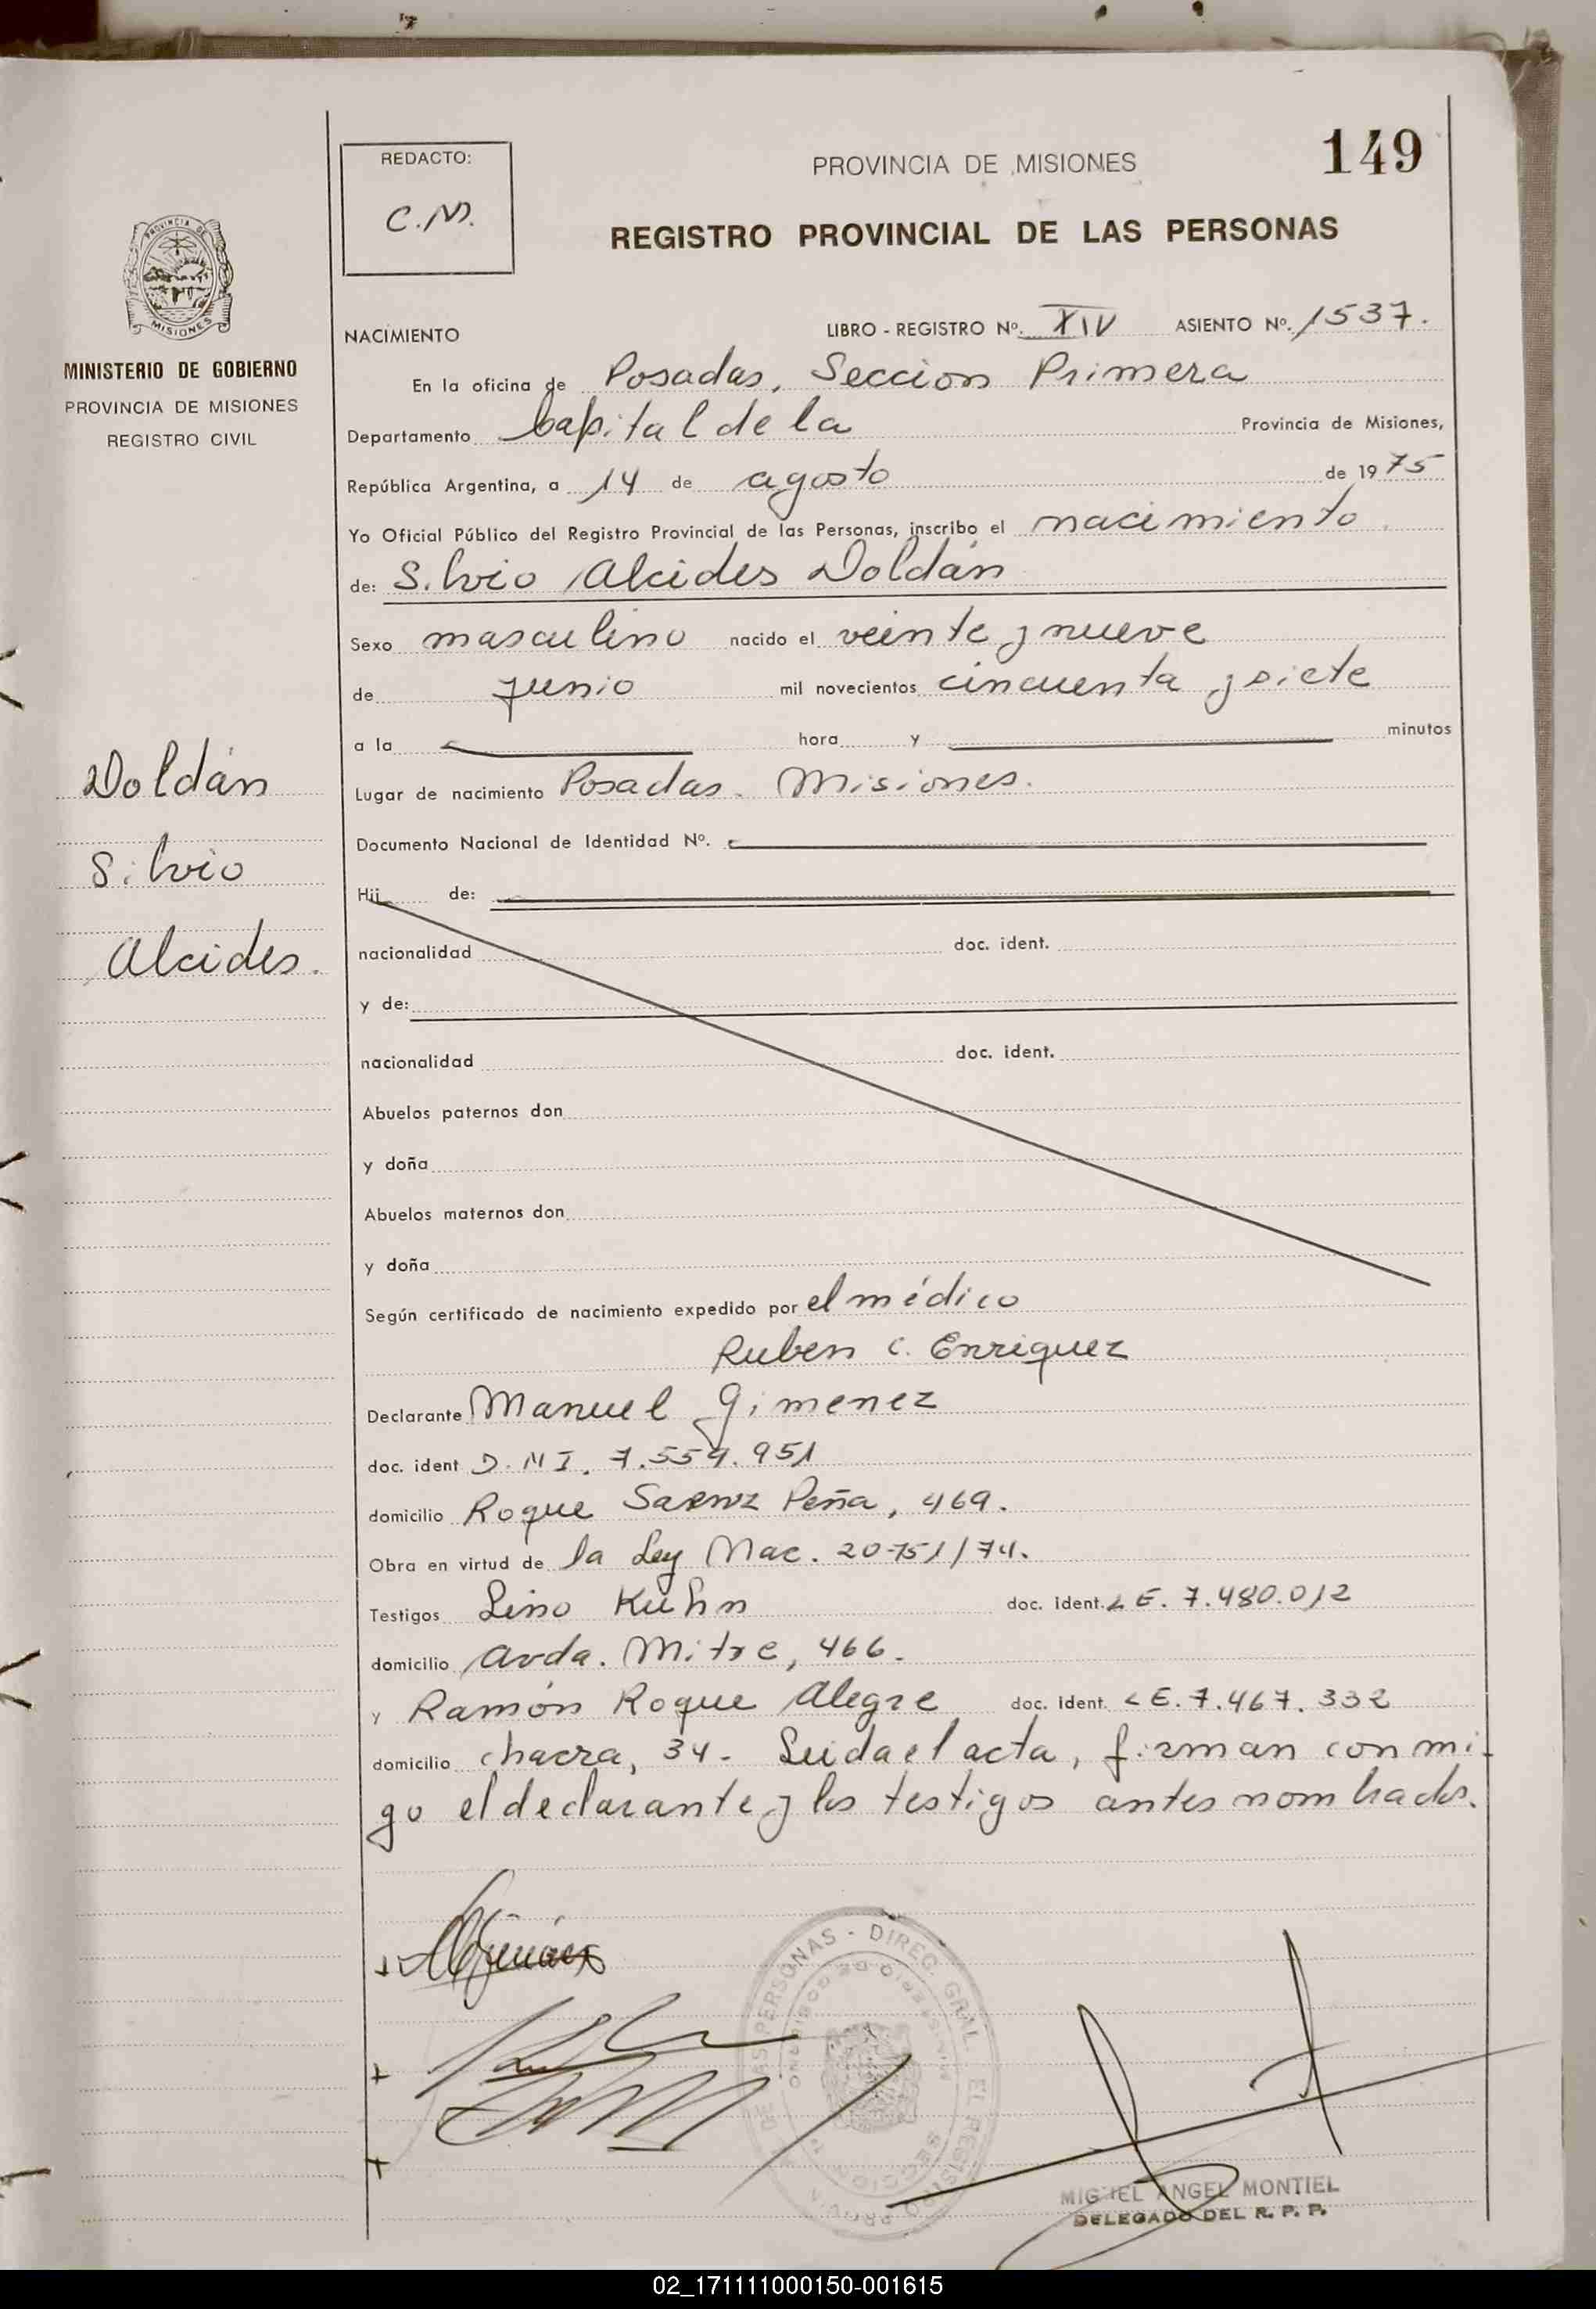 149
REDACTO:
C.M.
PROVINCIA DE MISIONES
REGISTRO PROVINCIAL DE LAS PERSONAS
PROVINCIA DE
MISIONES
MINISTERIO DE GOBIERNO
PROVINCIA DE MISIONES
REGISTRO CIVIL
NACIMIENTO LIBRO - REGISTRO Nº. XIV ASIENTO Nº. 1537.
En la oficina de Posadas, Seccion Primera
Departamento Capital de la Provincia de Misiones,
República Argentina, a 14 de agosto de 1975
Yo Oficial Público del Registro Provincial de las Personas, inscribo el nacimiento
de: Silvio Alcides Doldán
Sexo masculino nacido el veinte y nueve
de junio mil novecientos cincuenta y siete
a la hora y minutos
Doldán
Silvio
Alcides.
Lugar de nacimiento Posadas. Misiones.
Documento Nacional de Identidad Nº.
Hij de:
nacionalidad doc. ident.
y de:
nacionalidad doc. ident.
Abuelos paternos don
y doña
Abuelos maternos don
y doña
Según certificado de nacimiento expedido por el médico
Ruben C. Enriquez
Declarante Manuel Gimenez
doc. ident D.N I. 7.559.951
domicilio Roque Saenz Peña, 469.
Obra en virtud de la Ley Nac. 20751/74.
Testigos Lino Kuhn doc. ident. L E. 7.480.012
domicilio Avda. Mitre, 466.
y Ramón Roque Alegre doc. ident. L E. 7.467.332
domicilio chacra, 34. Leida el acta, firman con mi-
go el declarante y los testigos antes nombrados.
MIGUEL ANGEL MONTIEL
DELEGADO DEL R. P. P.
02_171111000150-001615